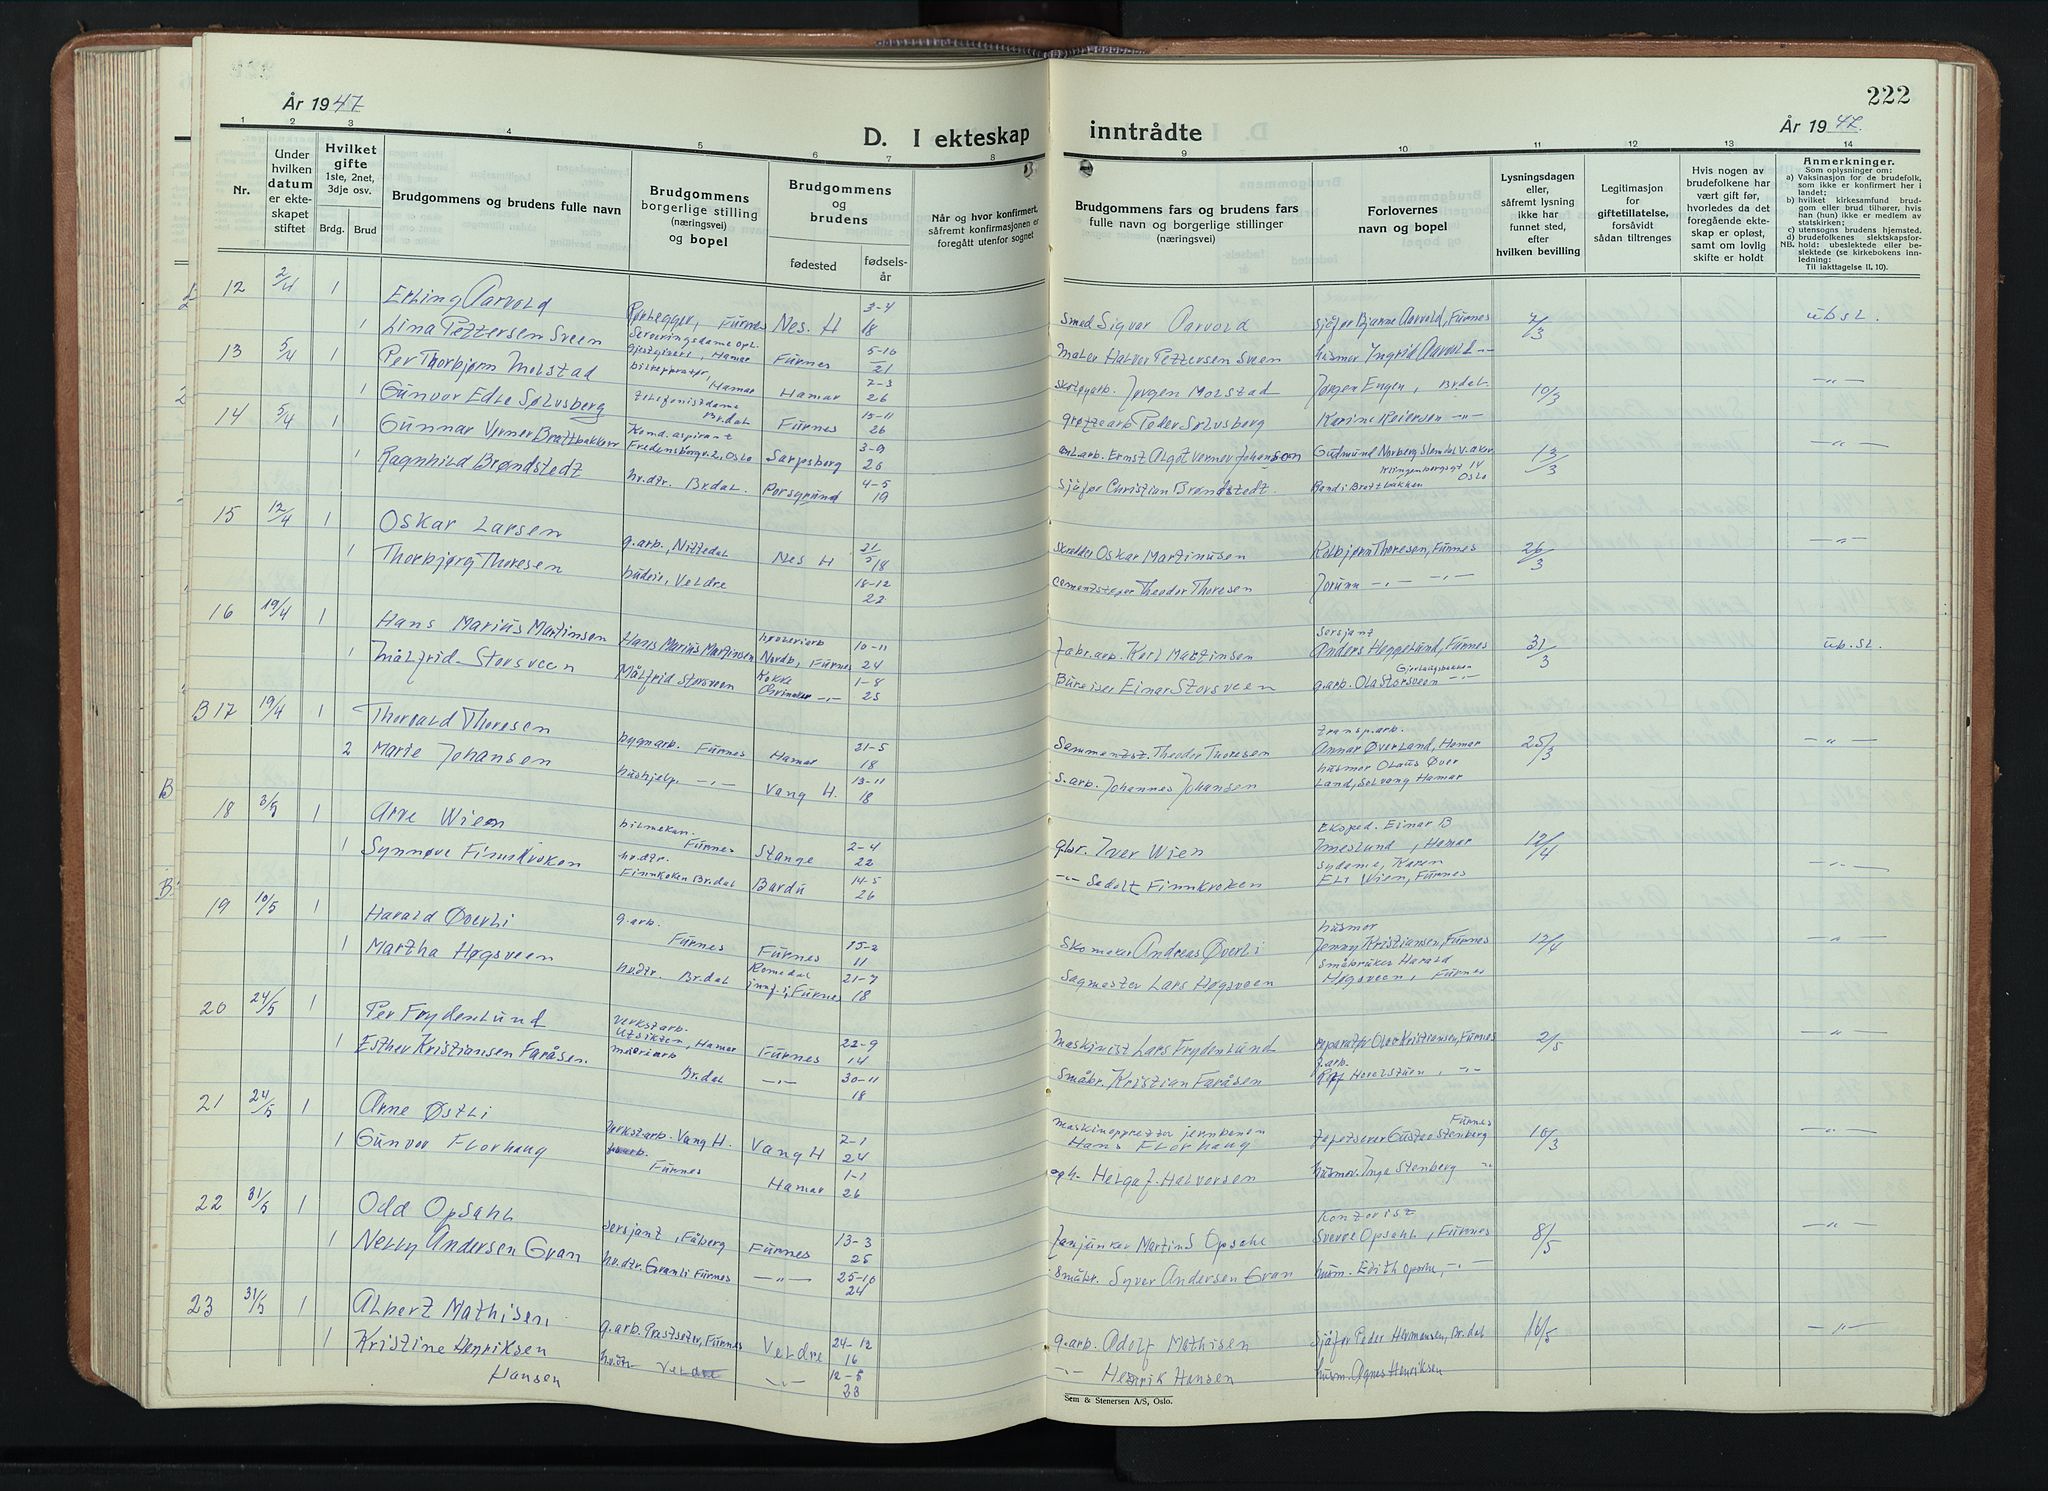 222
År 1947
År 1947
D. I ekteskap inntrådte
1 2 3 4 5 6 7 8 9 10 11 12 13 14
Nr.
Under hvilken datum er ekteskapet stiftet
Hvilket gifte 1ste, 2net, 3dje osv.
Brdg. Brud
Brudgommens og brudens fulle navn
Brudgommens borgerlige stilling (næringsvei) og bopel
Brudgommens og brudens
fødested
fødselsår
Når og hvor konfirmert, såfremt konfirmasjonen er foregått utenfor sognet
Brudgommens fars og brudens fars fulle navn og borgerlige stillinger (næringsvei)
Forlovernes navn og bopel
Lysningsdagen eller, såfremt lysning ikke har funnet sted, efter hvilken bevilling
Legitimasjon for giftetillatelse, forsåvidt sådan tiltrenges
Hvis nogen av brudefolkene har vært gift før, hvorledes da det foregående ekteskap er opløst, samt om lovlig skifte er holdt
Anmerkninger.
Som oplysning om:
a) Vaksinasjon for de brudefolk, som ikke er konfirmert her i landet;
b) hvilket kirkesamfund brudgom eller brud tilhører, hvis han (hun) ikke er medlem av statskirken;
c) utensogns brudens hjemsted.
d) brudefolkenes slektskapsforhold: ubeslektede eller beslektede (se kirkebokens innledning:
NB.
Til iakttagelse II, 10).
12 2/4 1 Erling Aarvold Rørlegger, Furnes Nes. H 3-4 18 Smed Sigvar Aarvold sjåfør Bjarne Aarvold, Furnes 7/3 ub.sl.
1 Lina Pettersen Sveen Serveringsdame Hamar Furnes 5-10 21 Maler Halvor Pettersen Sveen husmor Ingrid Aarvold -"-
13 5/4 1 Per Thorbjørn Molstad bilreparatør, Hamar Hamar 7-3 26 skotøyarb. Jørgen Molstad Jørgen Engen, Br.dal. 10/3 -"-
1 Gunvor Edle Sølvsberg telefonistdame Br.dal Furnes 15-11 26 Peder Sølvsberg Karine Reiersen -"-
14 5/4 1 Gunnar Verner Brattbakken Kond.aspirant Fredensborgv. 2, Oslo Sarpsborg 3-9 26 Ernst Algot Verner Johanson 13/3 -"-
1 Ragnhild Brøndstedt hv.dtr. Br.dal. Porsgrund 4-5 19 sjåfør Christian Brøndstedt. Randi Brattbakken Oslo
15 12/4 1 Oskar Larsen g.arb., Nittedal Nes H 21/5 18 Skredder Oskar Martinusen Kolbjørn Thoresen, Furnes 26/3 -"-
1 Thorbjørg Thoresen budeie, Veldre 18-12 22 Theodor Thoresen Jorunn -"- -"-
16 19/4 1 Hans Marius Martinsen Hans Marius Martinsen Nordb., Furnes 10-11 24 fabr.arb. Karl Martinsen sersjant Anders Heggelund, Furnes 31/3 ub.sl.
1 Målfrid Storsveen Målfrid Storsveen Kokke -"- 1-8 25 Bureiser Einar Storsveen g.arb. Ola Storsveen -"-
B 17 19/4 1 Thorvald Thoresen bygnarb. Furnes Hamar 21-5 18 Sementst. Theodor Thoresen transp.arb. Annar Øverland, Hamar 25/3 -"-
2 Marie Johansen hushjelp. -"- Vang H. 13-11 18 s.arb. Johannes Johansen husmor Olaug Øverland, Solvang Hamar
B
18 3/5 1 Arve Wien bilmekan. Furnes Stange 2-4 22 gbr. Iver Wien Eksped. Einar B Imeslund, Hamar 12/4 -"-
1 Synnøve Finnkroken hv.dtr. Br.dal Bardu 14-5 26 -"- Sedolt Finnkroken sydame, Karen Eli Wien, Furnes
B
19 10/5 1 Harald Øverli g.arb. Furnes Furnes 15-2 11 Skomaker Andreas Øverli husmor Jenny Kristiansen, Furnes 12/4 -"-
1 Martha Høgsveen hv.dtr. Br.dal Romedal innf. i, Furnes 21-7 18 Sagmester Lars Høgsveen Småbruker Harald Høgsveen, Furnes
20 24/5 1 Per Frydenlund verkstarb. Utsikten, Hamar Furnes 22-9 14 Maskinist Lars Frydenlund reparatør Olav Kristiansen, Furnes 2/5 -"-
1 Esther Kristiansen Faråsen meieriarb Br.dal -"- 30-11 18 Småbr. Kristian Faråsen g.arb. -"-
21 24/5 1 Arne Østli verkstarb. Vang H. Vang H 7-1 24 maskinoppretter jernbanen Hans Florhaug tapetserer Gustav Stenberg Furnes 10/3 -"-
1 Gunvor Florhaug Furnes Hamar 1-1 26 Helga f. Halvorsen husmor. Inga Stenberg -"-
22 31/5 1 Odd Opsahl sersjant, Fåberg Furnes 13-3 25 fanjunker Martin S Opsahl Kontorist Sverre Opsahl, Furnes 8/5 -"-
1 Nelly Andersen Gran hv.dtr. Granli Furnes -"- 25-10 24 Småbr. Syver Andersen Gran husm. Edith Opsahl, -"-
23 31/5 1 Albert Mathisen g.arb. Prestseter, Furnes Veldre 24-12 16 g.arb. Adolf Mathisen sjåfør Peder Hermansen, Br.dal 16/5 -"-
1 Kristine Henriksen Hansen Veldre -"- 12-5 23 -"- Henrik Hansen husm. Agnes Henriksen
Sem & Stenersen A/S, Oslo.